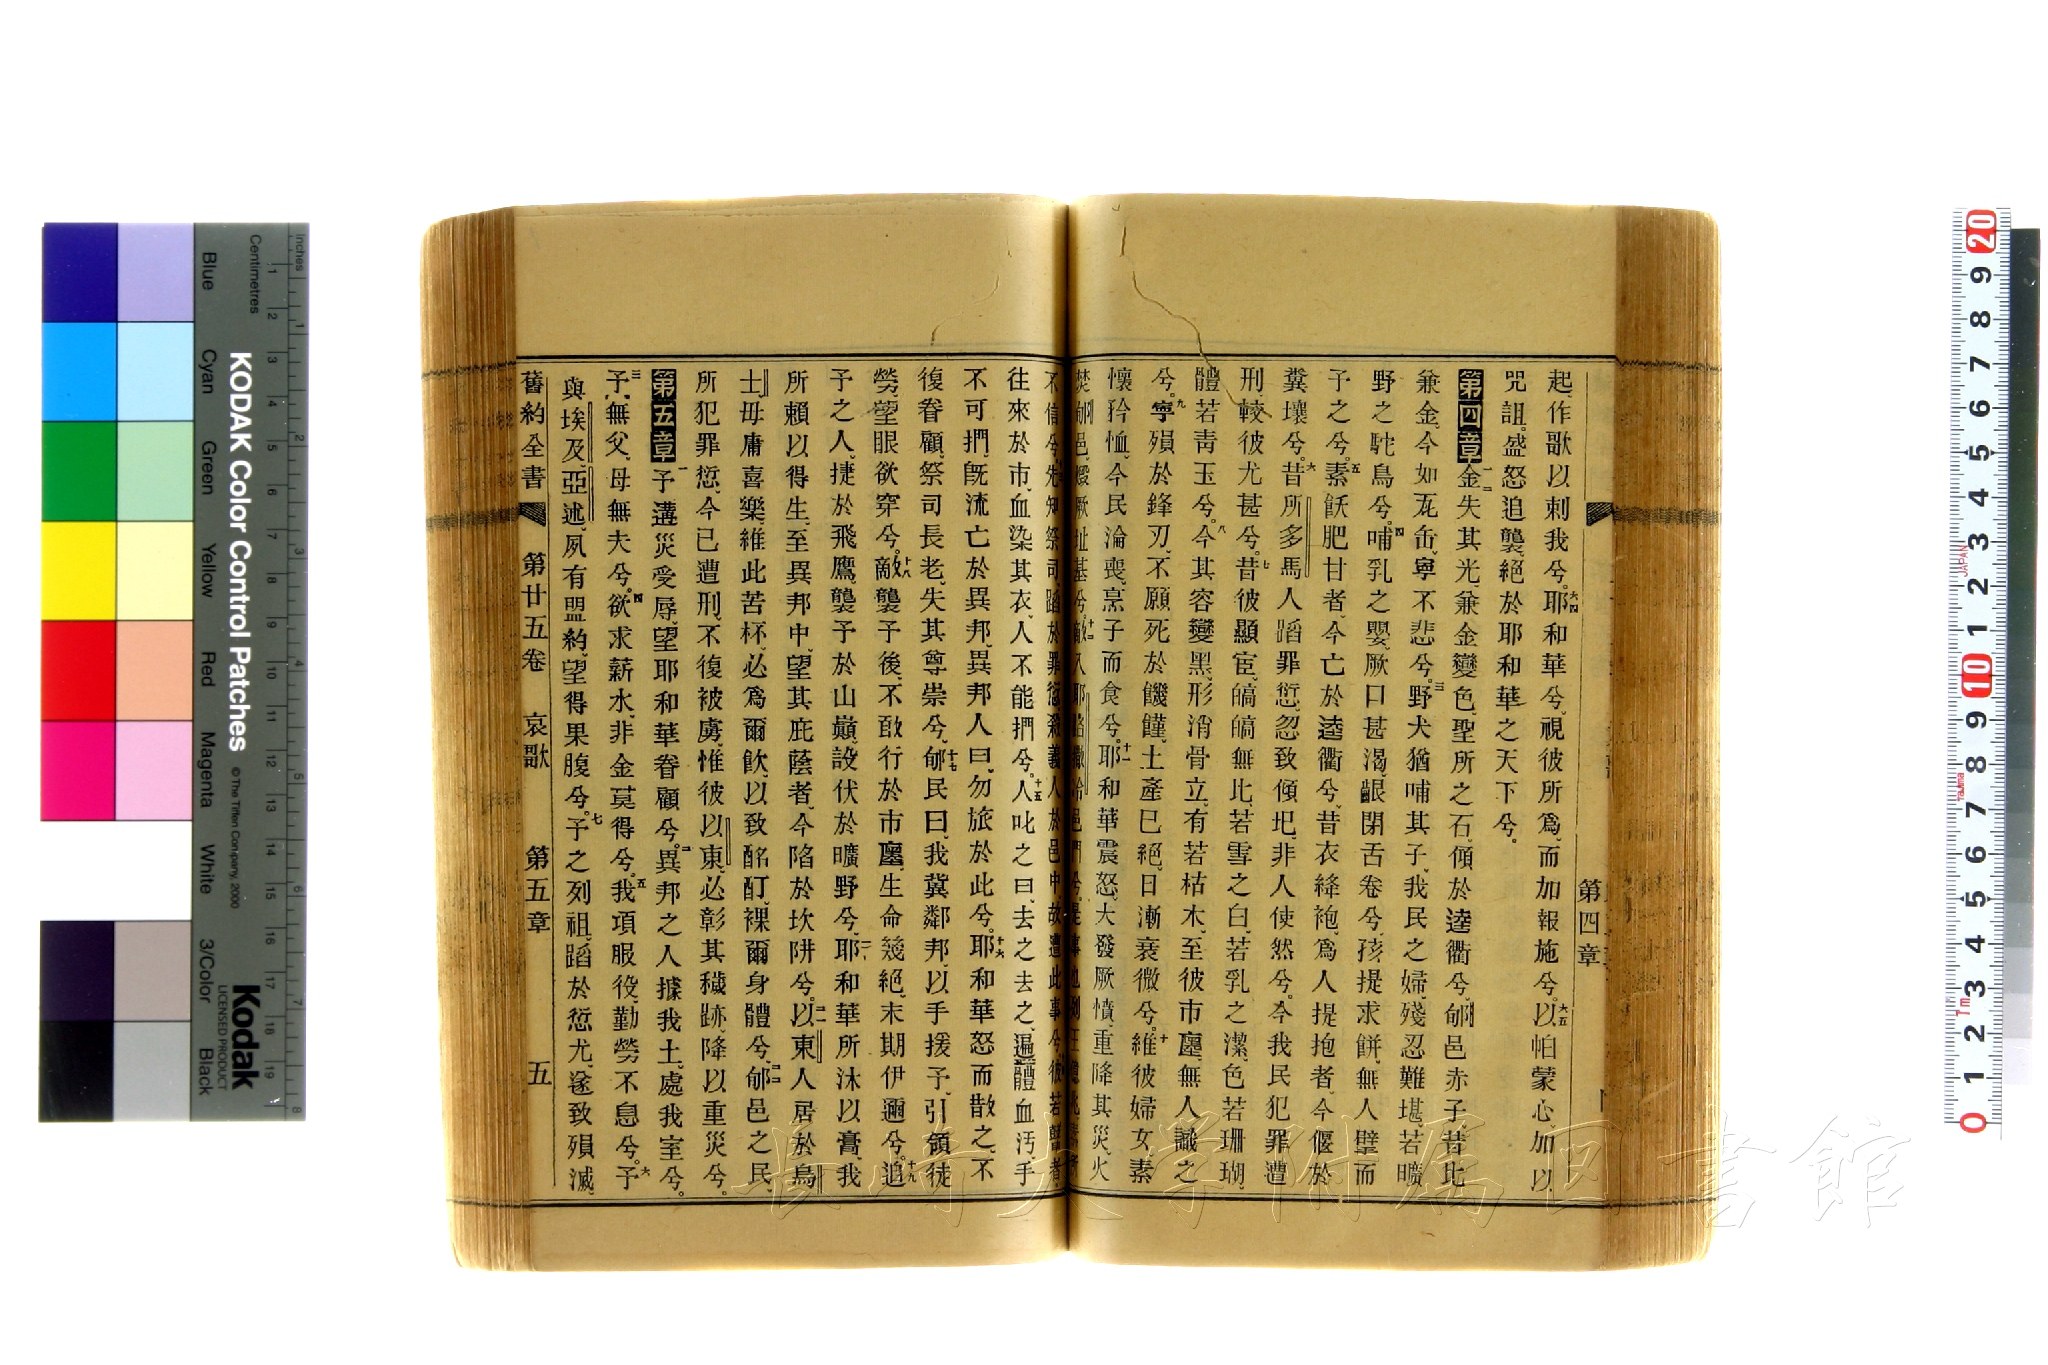 起、作歌以刺我兮。六四耶和華兮、視彼所爲、而加報施兮。六五以帕蒙心、加以
咒詛。盛怒追襲、絕於耶和華之天下兮。
第四章一二金失其光、兼金變色、聖所之石、傾於逵衢兮、郇邑赤子、昔比
兼金、今如瓦缶、寧不悲兮。三野犬猶哺其子、我民之婦、殘忍難堪、若曠
野之駝鳥兮。四哺乳之嬰、厥口甚渴、齦閉舌卷兮、孩提求餅、無人擘而
予之兮。五素飫肥甘者、今亡於逵衢兮、昔衣絳袍、爲人提抱者、今偃於
糞壤兮。六昔所多馬人蹈罪愆、忽致傾圯、非人使然兮。今我民犯罪遭
刑、較彼尤甚兮。七昔彼顯宦、皜皜無比、若雪之白、若乳之潔、色若珊瑚、
體若青玉兮。八今其容變黑、形消骨立、有若枯木、至彼市廛、無人識之
兮。九寧殞於鋒刃、不願死於饑饉、土產已絕、日漸衰微兮。十維彼婦女、素
懷矜恤、今民淪喪、烹子而食兮。十一耶和華震怒、大發厥憤、重降其災、火
焚郇邑、燬厥址基兮。
不信兮、先知祭司、蹈於罪愆、殺義人於邑中、故遭此事兮、彼若瞽者、
往來於市、血染其衣、人不能捫兮。十五人叱之曰、去之去之、遍體血污、手
不可捫、旣流亡於異邦、異邦人曰、勿旅於此兮。十六耶和華怒而散之、不
復眷顧、祭司長老、失其尊崇兮。十七郇民曰、我冀鄰邦、以手援予、引領徒
勞、望眼欲穿兮。十八敵襲予後、不敢行於市廛、生命幾絕、末期伊邇兮。十九追
予之人、捷於飛鷹、襲予於山巔、設伏於曠野兮。二十耶和華所沐以膏、我
所賴以得生、至異邦中、望其庇蔭者、今陷於坎阱兮。二一以東人居於烏
士、毋庸喜樂、維此苦杯、必爲爾飲、以致酩酊、裸爾身體兮。二二郇邑之民、
所犯罪愆、今已遭刑、不復被虜、惟彼以東、必彰其穢跡、降以重災兮。
第五章一予遘災受辱、望耶和華眷顧兮。二異邦之人據我土、處我室兮。
三予無父、母無夫兮。四欲求薪水、非金莫得兮。五我項服役、勤勞不息兮。六予
與埃及、亞述、夙有盟約、望得果腹兮。七予之列祖、蹈於愆尤、遂致殞滅、
舊約全書 第廿五卷 哀歌 第五章 五
第四章
長崎大学附属図書館
KODAK Color Control Patches
© The Tiffen Company, 2000
Kodak
LICENSED PRODUCT
Inches
Centimetres
Blue
Cyan
Green
Yellow
Red
Magenta
White
3/Color
Black
1 2 3 4 5 6 7 8 9 10 11 12 13 14 15 16 17 18 19
1 2 3 4 5 6 7 8
20 9 8 7 6 5 4 3 2 1 10 9 8 7 6 5 4 3 2 1 0
JAPAN
Tajima
7m